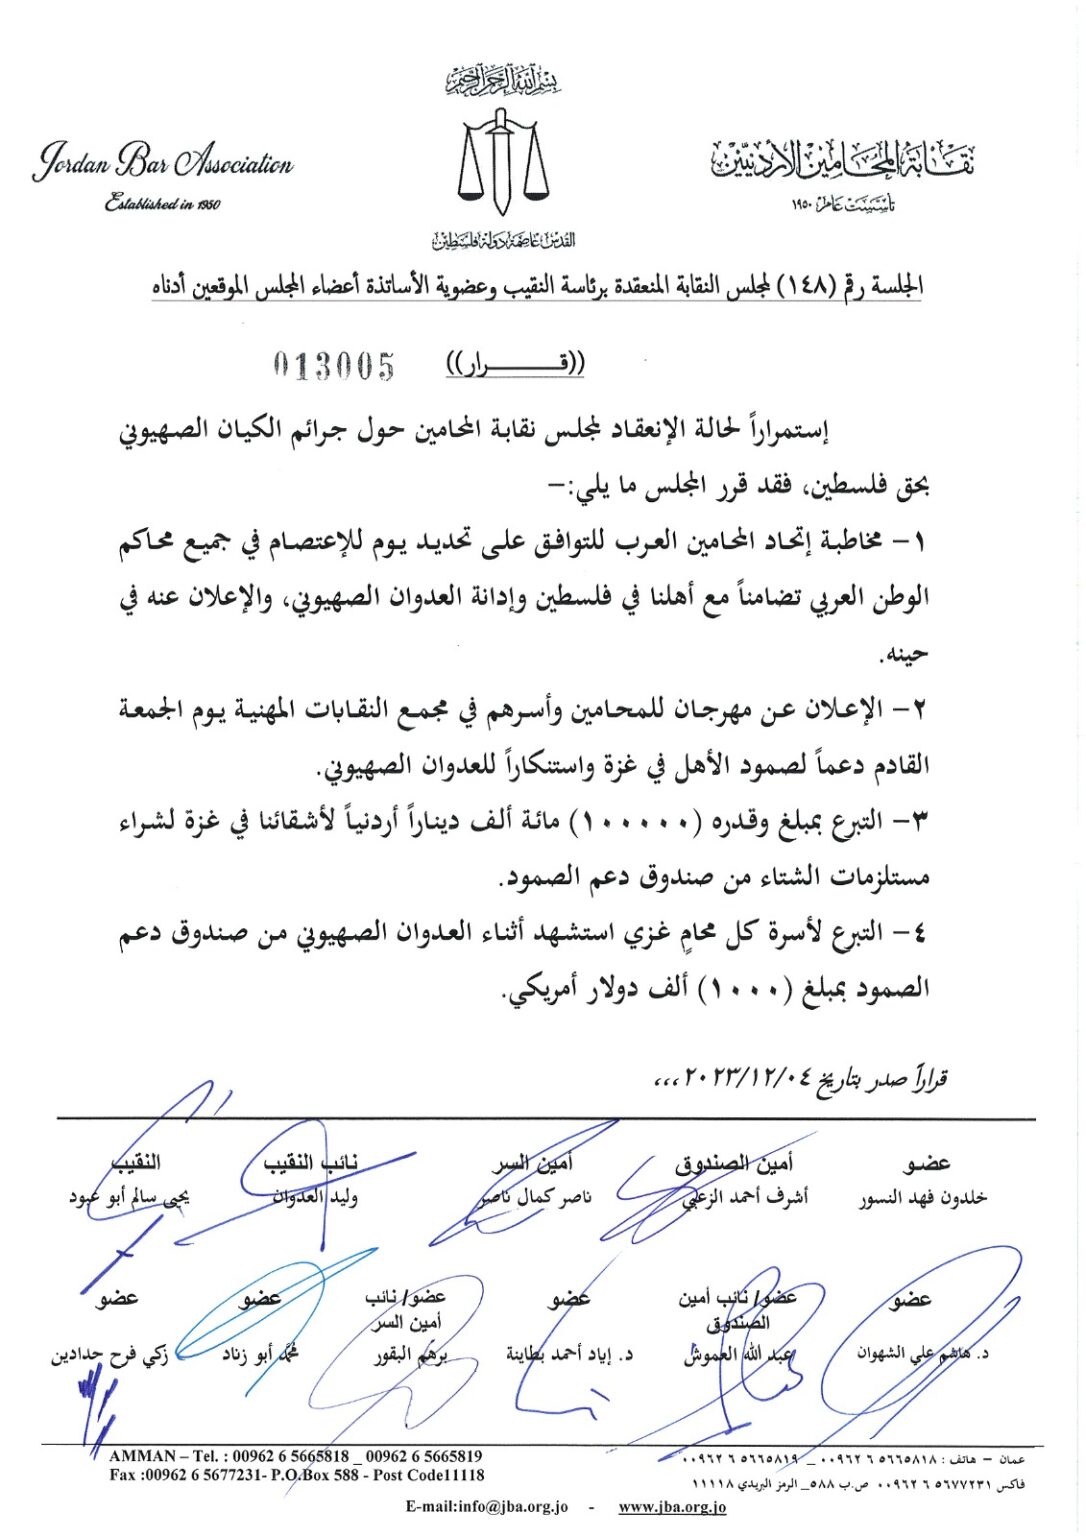 بسم الله الرحمن الرحيم
Jordan Bar Association
Established in 1950
نقابة المحامين الأردنيين
تأسست عام ١٩٥٠
القدس عاصمة دولة فلسطين
الجلسة رقم (١٤٨) لمجلس النقابة المنعقدة برئاسة النقيب وعضوية الأساتذة أعضاء المجلس الموقعين أدناه
((قـــــــرار))
013005
إستمراراً لحالة الإنعقاد لمجلس نقابة المحامين حول جرائم الكيان الصهيوني
بحق فلسطين، فقد قرر المجلس ما يلي:–
١– مخاطبة إتحاد المحامين العرب للتوافق على تحديد يوم للإعتصام في جميع محاكم
الوطن العربي تضامناً مع أهلنا في فلسطين وإدانة العدوان الصهيوني، والإعلان عنه في
حينه.
٢– الإعلان عن مهرجان للمحامين وأسرهم في مجمع النقابات المهنية يوم الجمعة
القادم دعماً لصمود الأهل في غزة واستنكاراً للعدوان الصهيوني.
٣– التبرع بمبلغ وقدره (١٠٠٠٠٠) مائة ألف ديناراً أردنياً لأشقائنا في غزة لشراء
مستلزمات الشتاء من صندوق دعم الصمود.
٤– التبرع لأسرة كل محامٍ غزي استشهد أثناء العدوان الصهيوني من صندوق دعم
الصمود بمبلغ (١٠٠٠) ألف دولار أمريكي.
قراراً صدر بتاريخ ٢٠٢٣/١٢/٠٤،،،
عضو أمين الصندوق أمين السر نائب النقيب النقيب
خلدون فهد النسور أشرف أحمد الزعبي ناصر كمال ناصر وليد العدوان يحيى سالم أبو عبود
عضو عضو/ نائب أمين عضو عضو/ نائب عضو عضو
الصندوق أمين السر
د. هاشم علي الشهوان عبد الله العموش د. إياد أحمد بطاينة برهم البقور محمد أبو زناد زكي فرح حدادين
AMMAN – Tel. : 00962 6 5665818 _ 00962 6 5665819
عمان – هاتف : ٥٦٦٥٨١٨ ٦ ٠٠٩٦٢ _ ٥٦٦٥٨١٩ ٦ ٠٠٩٦٢
Fax :00962 6 5677231- P.O.Box 588 - Post Code11118
فاكس ٥٦٧٧٢٣١ ٦ ٠٠٩٦٢ ص.ب ٥٨٨_ الرمز البريدي ١١١١٨
E-mail:info@jba.org.jo - www.jba.org.jo